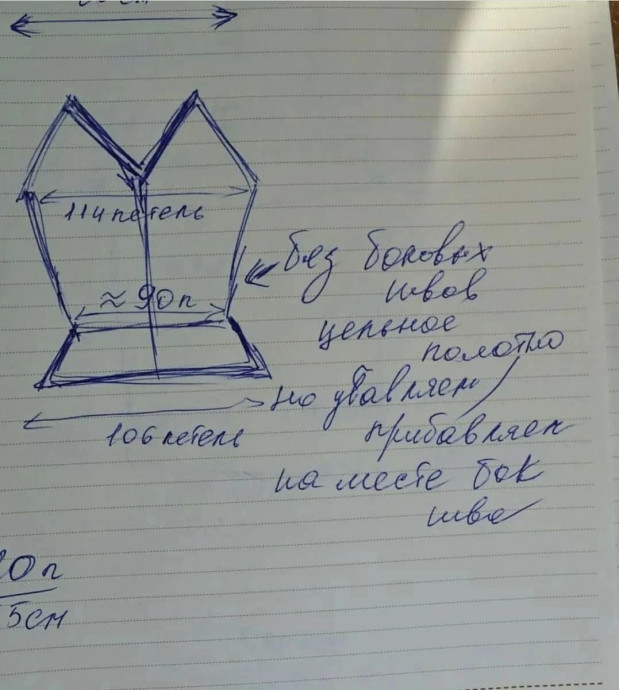 114 петель
≈ 90 п
без боковых
швов
цельное
полотно
но убавляем/
прибавляем
на месте бок
шва
106 петель
5см